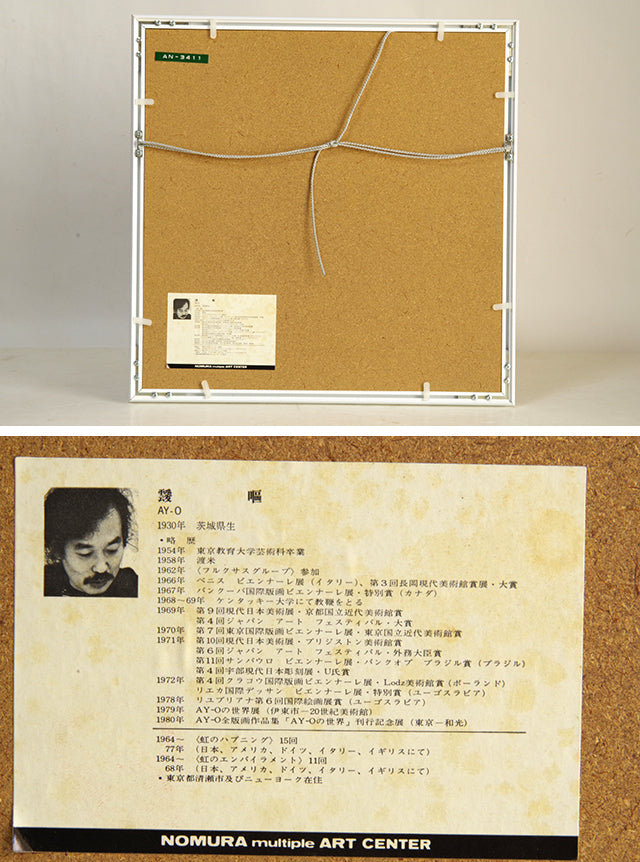 AN-3411
NOMURA multiple ART CENTER
靉　嘔
AY-O
1930年　茨城県生
・略　歴
1954年　東京教育大学芸術科卒業
1958年　渡米
1962年　〈フルクサスグループ〉参加
1966年　ベニス　ビエンナーレ展（イタリー）、第３回長岡現代美術館賞展・大賞
1967年　バンクーバ国際版画ビエンナーレ展・特別賞（カナダ）
1968〜69年　ケンタッキー大学にて教鞭をとる
1969年　第９回現代日本美術展・京都国立近代美術館賞
第４回ジャパン　アート　フェスティバル・大賞
1970年　第７回東京国際版画ビエンナーレ展・東京国立近代美術館賞
1971年　第10回現代日本美術展・ブリジストン美術館賞
第６回ジャパン　アート　フェスティバル・外務大臣賞
第11回サンパウロ　ビエンナーレ展・バンクオブ　ブラジル賞（ブラジル）
第４回宇部現代日本彫刻展・U氏賞
1972年　第４回クラコウ国際版画ビエンナーレ展・Lodz美術館賞（ポーランド）
リエカ国際デッサン　ビエンナーレ展・特別賞（ユーゴスラビア）
1978年　リユブリアナ第６回国際絵画展賞（ユーゴスラビア）
1979年　AY-Oの世界展（伊東市—20世紀美術館）
1980年　AY-O全版画作品集「AY-Oの世界」刊行記念展（東京—和光）
1964〜　〈虹のハプニング〉15回
77年　（日本、アメリカ、ドイツ、イタリー、イギリスにて）
1964〜　〈虹のエンバイラメント〉11回
68年　（日本、アメリカ、ドイツ、イタリー、イギリスにて）
・東京都清瀬市及びニューヨーク在住
NOMURA multiple ART CENTER